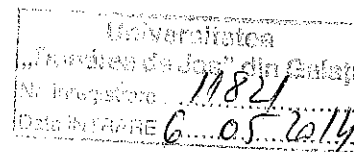 Universitatea
„Dunărea de Jos” din Galaţi
Nr. înregistrare 11821
Data INTRARE 6 05 2014